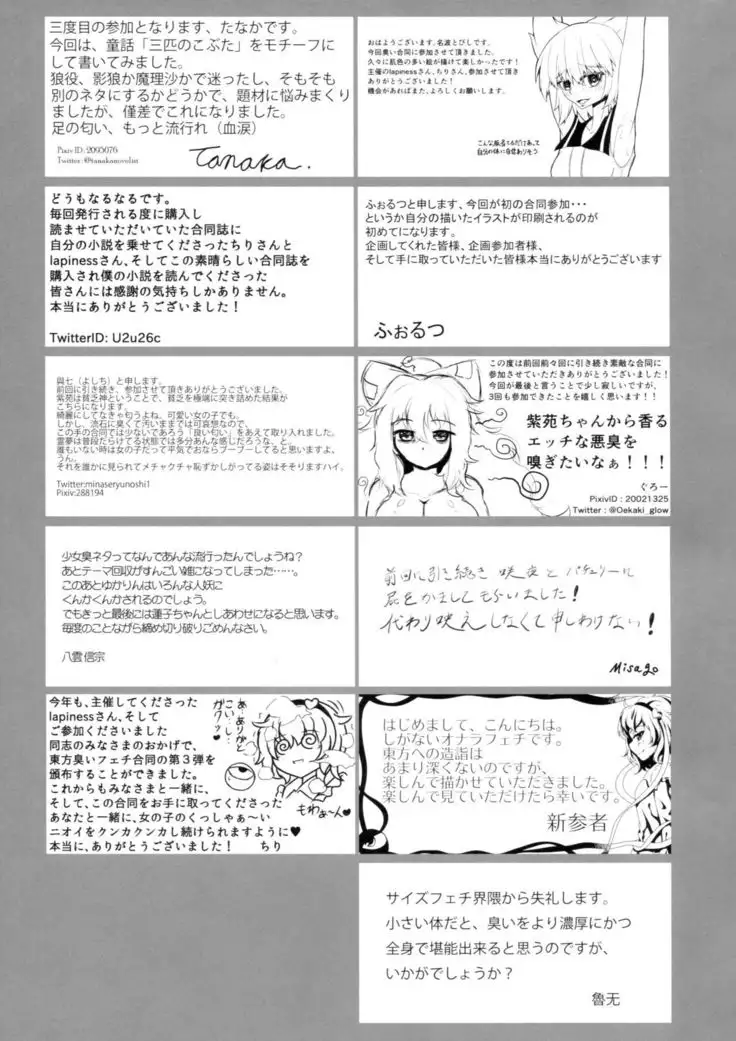 三度目の参加となります、たなかです。
今回は、童話「三匹のこぶた」をモチーフに
して書いてみました。
狼役、影狼か魔理沙かで迷ったし、そもそも
別のネタにするかどうかで、題材に悩みまくり
ましたが、僅差でこれになりました。
足の匂い、もっと流行れ（血涙）
Pixiv ID : 2095076
Twitter : @tanakanovelist
Tanaka.
おはようございます、名波とびしです。
今回臭い合同に参加させて頂きました。
久々に肌色の多い絵が描けて楽しかったです！
主催のlapinessさん、ちりさん、参加させて頂き
ありがとうございました！
機会があればまた、よろしくお願いします。
こんな服着てるだけあって
自分の体に自信ありそう
どうもなるなるです。
毎回発行される度に購入し
読ませていただいていた合同誌に
自分の小説を乗せてくださったちりさんと
lapinessさん、そしてこの素晴らしい合同誌を
購入され僕の小説を読んでくださった
皆さんには感謝の気持ちしかありません。
本当にありがとうございました！
TwitterID: U2u26c
ふぉるつと申します、今回が初の合同参加・・・
というか自分の描いたイラストが印刷されるのが
初めてになります。
企画してくれた皆様、企画参加者様、
そして手に取っていただいた皆様本当にありがとうございます
ふぉるつ
與七（よしち）と申します。
前回に引き続き、参加させて頂きありがとうございました。
紫苑は貧乏神ということで、貧乏を極端に突き詰めた結果が
こちらになります。
綺麗にしてなきゃ匂うよね。可愛い女の子でも。
しかし、流石に臭くて汚いままでは可哀想なので、
この手の合同では少ないであろう「良い匂い」をあえて取り入れました。
霊夢は普段だらけてる状態では多分あんな感じだろうな、と。
誰もいない時は女の子だって平気でおならブーブーしてると思いますよ、
うん。
それを誰かに見られてメチャクチャ恥ずかしがってる姿はそそりますハイ。
Twitter:minaseryunoshi1
Pixiv:288194
この度は前回前々回に引き続き素敵な合同に
参加させていただきありがとうございました！
今回が最後と言うことで少し寂しいですが、
3回も参加できたことを嬉しく思います！！
紫苑ちゃんから香る
エッチな悪臭を
嗅ぎたいなぁ！！！
ぐろー
PixivID : 20021325
Twitter : @Oekaki_glow
少女臭ネタってなんであんな流行ったんでしょうね？
あとテーマ回収がすんごい雑になってしまった……。
このあとゆかりんはいろんな人妖に
くんかくんかされるのでしょう。
でもきっと最後には蓮子ちゃんとしあわせになると思います。
毎度のことながら締め切り破りごめんなさい。
八雲信宗
前回に引き続き 咲夜と パチュリーに
屁をかましてもらいました！
代わり映えしなくて申しわけない！
Misago
今年も、主催してくださった
lapinessさん、そして
ご参加くださいました
同志のみなさまのおかげで、
東方臭いフェチ合同の第３弾を
頒布することができました。
これからもみなさまと一緒に、
そして、この合同をお手に取ってくださった
あなたと一緒に、女の子のくっしゃぁ〜い
ニオイをクンカクンカし続けられますように♥
本当に、ありがとうございました！ ちり
あ…ありがと
こいし…
ガクッ…
もわぁ〜ん♥
はじめまして、こんにちは。
しがないオナラフェチです。
東方への造詣は
あまり深くないのですが、
楽しんで描かせていただきました。
楽しんで見ていただけたら幸いです。
新参者
サイズフェチ界隈から失礼します。
小さい体だと、臭いをより濃厚にかつ
全身で堪能出来ると思うのですが、
いかがでしょうか？
魯无